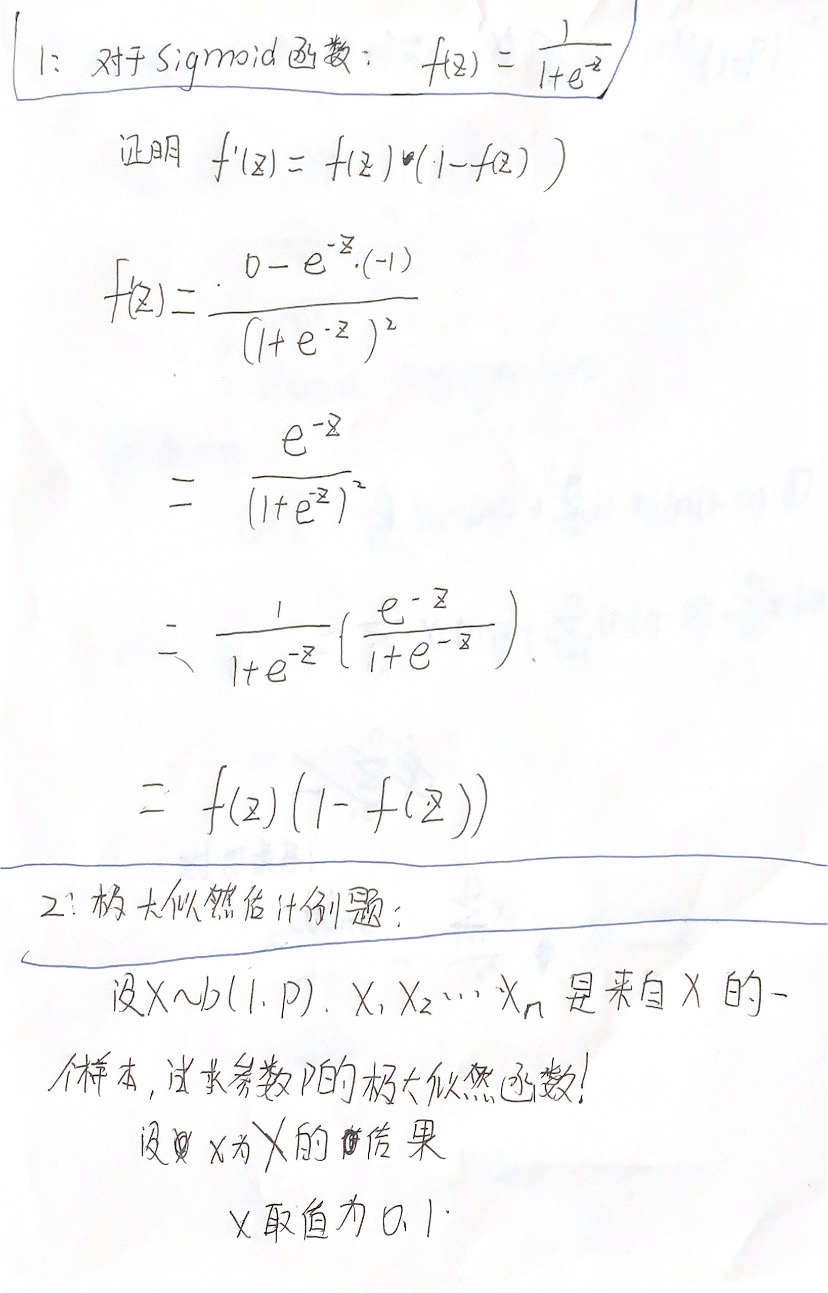 1: 对于Sigmoid函数: f(z) = 1/(1+e^-z)
证明 f'(z) = f(z)•(1-f(z))
f'(z) = (0-e^-z·(-1))/(1+e^-z)^2
= e^-z/(1+e^-z)^2
= 1/(1+e^-z) (e^-z/(1+e^-z))
= f(z)(1-f(z))
2: 极大似然估计例题:
设X~b(1.p). X1 X2 … Xn 是来自X的一
个样本,试求参数P的极大似然函数!
设 x为X的结果
x取值为0,1.